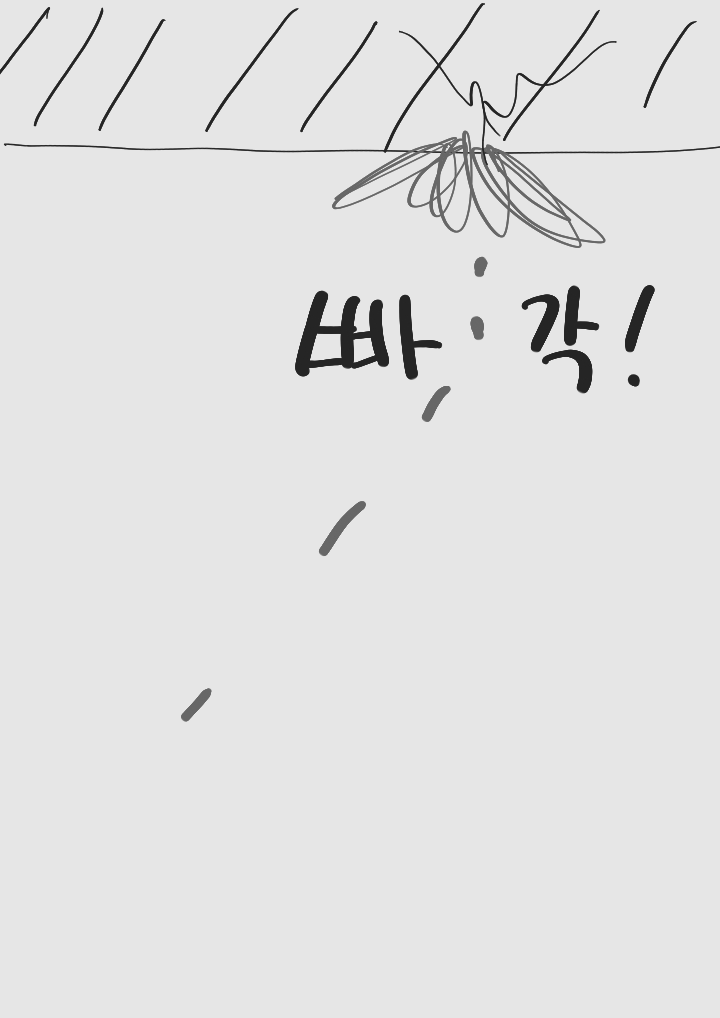 빠 각!